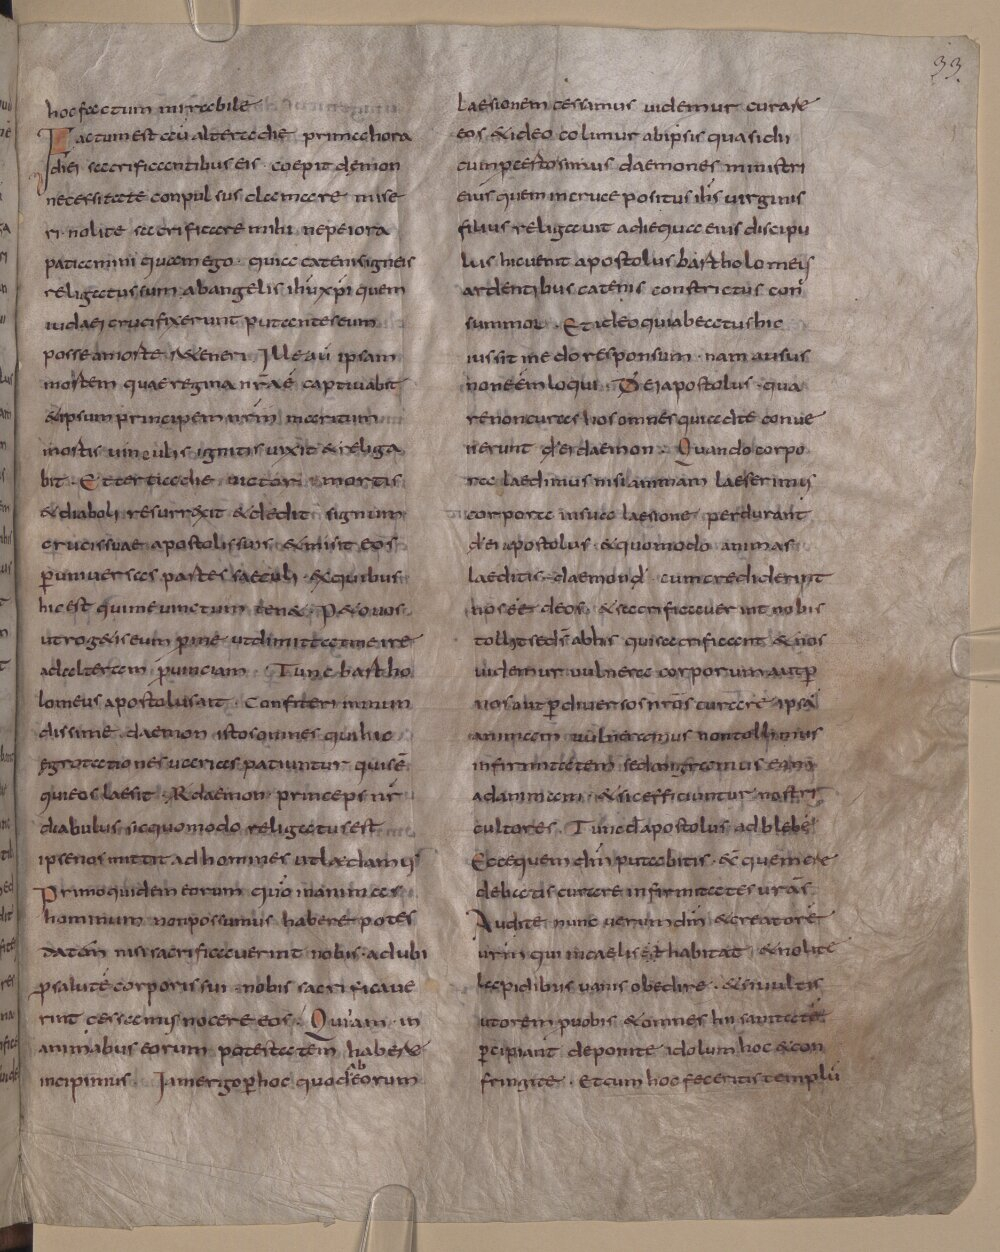 33
hoc factum mirabile
Factum est aū altera die prima hora
diei sacrificantibus eis coepit demon
necessitate conpulsus clamare mise
ri nolite sacrificare mihi ne peiora
patiamini quam ego · quia catenis igneis
religatus sum ab angelis ihū xp̄i quem
iudaei crucifixerunt putantes eum
posse a morte teneri Ille aū ipsam
mortem quae regina nr̄a ē captivabit
& ipsum principem nr̄m maritum
mortis vinculis ignitis vixit & religa
bit · Et tertia die victor mortis
& diaboli resurrexit & dedit signum
crucis suae apostolis suis & misit eos
p universas partes saeculi · & quibus
hic est qui me vinctum ten& · P&o vos
ut rog&is eum p me ut dimittat me ire
ad alteram p̄uinciam Tunc bartho
lomeus apostolus ait · Confiteri inmun
dissime daemon istos omnes qui hic
egrotationes varias patiuntur quis ē
qui eos laesit · R daemon princeps nr̄
diabulus sic quomodo religatus est
ipse nos mittit ad homines ut laedamus
Primo quidem eorum quō in animas
hominum non possumus habere potes
datem nisi sacrificaverint nobis · ad ubi
p salute corporis sui nobis sacrificave
rint cessamus nocere eos · Quiam in
animabus eorum potestatem habere
incipimus · Iam ergo p hoc quod ab eorum
laesionem cessamus videmur curare
eos & ideo colimur ab ipsis quasi dii
cum p certo simus daemones ministri
eius quem in cruce positus ihs virginis
filius religavit a die qua eius discipu
lus hic venit apostolus bartholomeus
ardentibus catenis constrictus con
summor · Et ideo quia becatus hic
iussit me do responsum · nam ausus
non eēm loqui · Dei apostolus · qua
re non curas hos omnes qui ad te conve
nerunt d ei daemon · Quando corpo
ra laedimus nisi animam laeserimus
corpora in sua laesione perdurant
d ei apostolus · & quomodo animas
laeditis daemon d · cum crediderint
nos eē deos & sacrificaverint nobis
tollit se ds̄ ab his qui sacrificant & nos
videmur vulnera corporum aut p
nos aut p diversos nr̄os curare ipsā
animam vulneramus non tollimus
infirmitatem sed migramus eam
ad animam · & sic efficiuntur nostri
cultores · Tunc d apostolus ad blebē
Ecce quem dm̄ putabitis · Ecce quem vre
debatis curare infirmitates vr̄as
Audite nunc verum dm̄ & creatorē
vr̄m qui in caelis est habitat · & nolite
lapidibus vanis obedire · & si vultis
ut orem p vobis & omnes hii sanitatē
pcipiant deponite idolum hoc & con
fringite · Et cum hoc feceritis templū